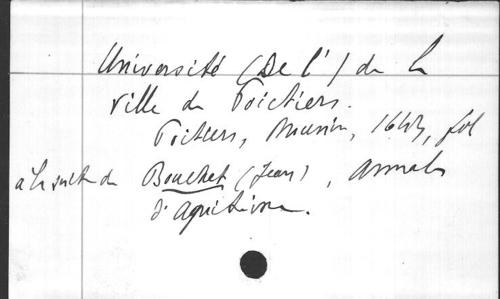 Université (De l') de la
ville de Poictiers.
Poitiers, Mounin, 1643, fol
à la suite de Bouchet (Jean), Annales
d'Aquitaine.